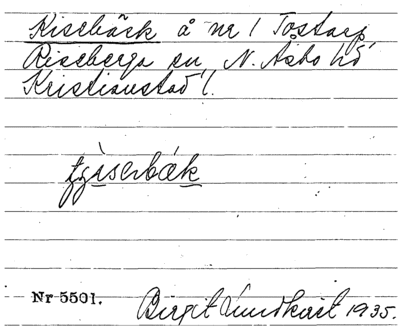 Kisebäck å nr 1 Tostarp,
Riseberga sn, N. Åsbo hd
Kristianstad l.
tjìsərbæk
Nr 5501.
Birgit Lundkvist 1935.